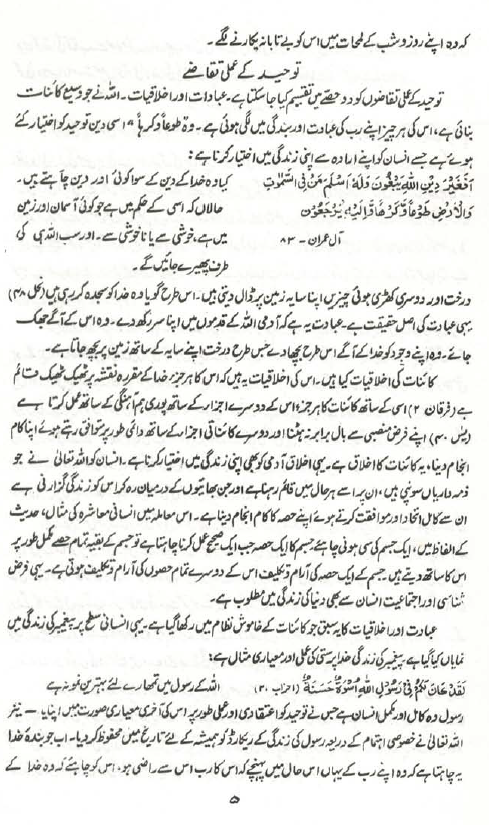 کہ وہ اپنے روز و شب کے لمحات میں اس کو بے تابانہ پکارنے لگے۔
توحید کے عملی تقاضے
توحید کے عملی تقاضوں کو دو حصے میں تقسیم کیا جا سکتا ہے۔ عبادات اور اخلاقیات۔ اللہ نے جو وسیع کائنات
بنائی ہے، اس کی ہر چیز اپنے رب کی عبادت اور بندگی میں لگی ہوئی ہے۔ وہ طوعاً و کرہاً اسی دین توحید کو اختیار کئے
ہوئے ہے جسے انسان کو اپنے ارادہ سے اپنی زندگی میں اختیار کرنا ہے:
أَفَغَيْرَ دِينِ اللَّهِ يَبْغُونَ وَلَهُ أَسْلَمَ مَنْ فِي السَّمٰوٰتِ کیا وہ خدا کے دین کے سوا کوئی اور دین چاہتے ہیں۔
وَالْأَرْضِ طَوْعًا وَّكَرْهًا وَّإِلَيْهِ يُرْجَعُونَ حالاں کہ اسی کے حکم میں ہے جو کوئی آسمان اور زمین
آل عمران - ۸۳ میں ہے، خوشی سے یا ناخوشی سے۔ اور سب اللہ ہی کی
طرف پھیرے جائیں گے۔
درخت اور دوسری کھڑی ہوئی چیزیں اپنا سایہ زمین پر ڈال دیتی ہیں۔ اس طرح گویا وہ خدا کو سجدہ کر رہی ہیں (نحل ۴۸)
یہی عبادت کی اصل حقیقت ہے۔ عبادت یہ ہے کہ آدمی اللہ کے قدموں میں اپنا سر رکھ دے۔ وہ اس کے آگے جھک
جائے۔ وہ اپنے وجود کو خدا کے آگے اس طرح بچھا دے جس طرح درخت اپنے سایہ کے ساتھ زمین پر بچھ جاتا ہے۔
کائنات کی اخلاقیات کیا ہیں۔ اس کی اخلاقیات یہ ہیں کہ اس کا ہر جزء خدا کے مقررہ نقشہ پر ٹھیک ٹھیک قائم
ہے (فرقان ۲) اسی کے ساتھ کائنات کا ہر جزء اس کے دوسرے اجزاء کے ساتھ پوری ہم آہنگی کے ساتھ عمل کرتا ہے
(یٰس ۴۰) اپنے فرض منصبی سے بال برابر نہ ہٹنا اور دوسرے کائناتی اجزاء کے ساتھ دائمی طور پر متوافق رہتے ہوئے اپنا کام
انجام دینا، یہ کائنات کا اخلاق ہے۔ یہی اخلاق آدمی کو بھی اپنی زندگی میں اختیار کرنا ہے۔ انسان کو اللہ تعالیٰ نے جو
ذمہ داریاں سونپی ہیں، ان پر اسے ہر حال میں قائم رہنا ہے اور جن بھائیوں کے درمیان رہ کر اس کو زندگی گزارنی ہے
ان سے کامل اتحاد اور موافقت کرتے ہوئے اپنے حصہ کا کام انجام دینا ہے۔ اس معاملہ میں انسانی معاشرہ کی مثال، حدیث
کے الفاظ میں، ایک جسم کی سی ہونی چاہئے۔ جسم کا ایک حصہ جب ایک صحیح عمل کرنا چاہتا ہے تو جسم کے بقیہ تمام حصے مکمل طور پر
اس کا ساتھ دیتے ہیں۔ جسم کے ایک حصہ کی آرام و تکلیف اس کے دوسرے تمام حصوں کی آرام و تکلیف ہوتی ہے۔ یہی فرض
شناسی اور اجتماعیت انسان سے بھی دنیا کی زندگی میں مطلوب ہے۔
عبادت اور اخلاقیات کا یہ سبق جو کائنات کے خاموش نظام میں رکھا گیا ہے۔ یہی انسانی سطح پر پیغمبر کی زندگی میں
نمایاں کیا گیا ہے۔ پیغمبر کی زندگی خدا پرستی کی عملی اور معیاری مثال ہے:
لَقَدْ كَانَ لَكُمْ فِي رَسُولِ اللَّهِ أُسْوَةٌ حَسَنَةٌ (احزاب ۲۰) اللہ کے رسول میں تمھارے لئے بہترین نمونہ ہے
رسول وہ کامل اور مکمل انسان ہے جس نے توحید کو اعتقادی اور عملی طور پر اس کی آخری معیاری صورت میں اپنایا — نیز
اللہ تعالیٰ نے خصوصی اہتمام کے ذریعہ رسول کی زندگی کے ریکارڈ کو ہمیشہ کے لئے تاریخ میں محفوظ کر دیا۔ اب جو بندۂ خدا
یہ چاہتا ہے کہ وہ اپنے رب کے یہاں اس حال میں پہنچے کہ اس کا رب اس سے راضی ہو، اس کو چاہئے کہ وہ خدا کے
۵